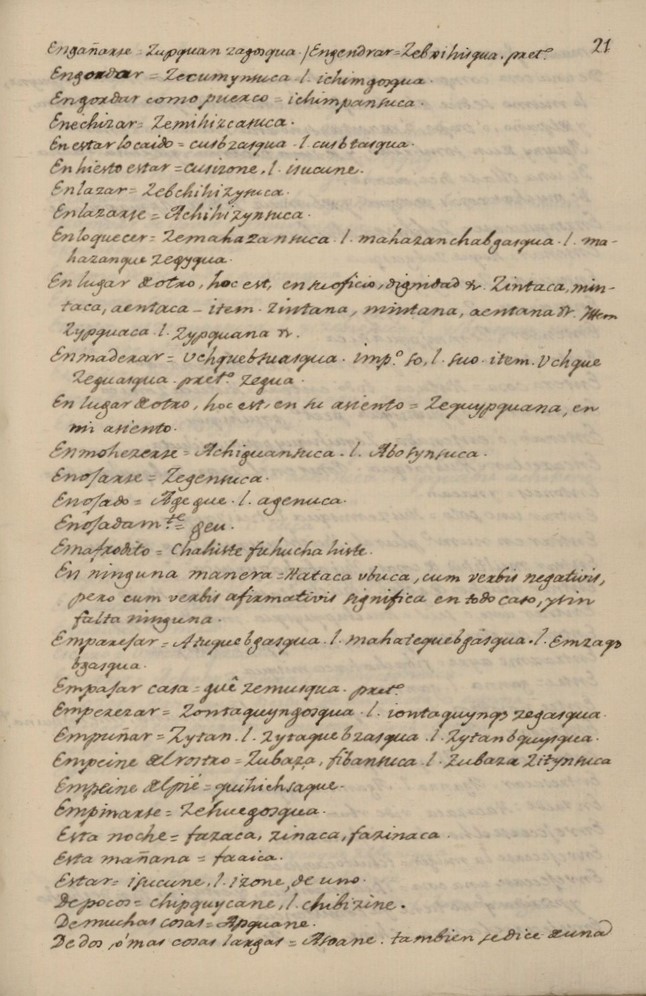 21
Engañarse = Zupquan zagosqua. / Engendrar = Zebxihisqua. pret.º
Engordar = Zecumynsuca .l. ichimgosqua.
Engordar como puerco = ichimpansuca.
Enechizar = Zemihizcasuca.
En estar lo caido = cusbzasqua .l. cusbtasqua.
En hiesto estar = cusizone, .l. isucune.
Enlazar = Zebchihizysuca.
Enlazarse = Achihizynsuca.
Enloquecer = Zemahazansuca .l. mahazanchabgasqua .l. ma-
hazanque zegyqua.
En lugar de otro, hoc est, en su oficio, dignidad &. Zintaca, min-
taca, aentaca - item. Zintana, mintana, aentana &. Item
Zypquaca .l. Zypquana &.
Enmaderar = Vchquebsuasqua. imp.º so, .l. suo. item. Vchque
Zeguasqua. pret.º zegua.
En lugar de otro, hoc est, en su asiento = Zequypquana, en
mi asiento.
Enmohezerse = Achiguansuca .l. Abosynsuca.
Enojarse = Zegensuca.
Enojado = Ageque .l. agenuca.
Enojadam.te = geu.
Emafrodito = Chahiste fuhucha histe.
En ninguna manera = Hataca vbuca, cum verbis negativis,
pero cum verbis afirmativis significa en todo caso, y sin
falta ninguna.
Emparejar = Atuquebgasqua .l. mahatequebgasqua .l. Emzaqs
bgasqua.
Empajar casa = guê zemusqua. pret.º
Emperezar = Zontaquyngosqua .l. iontaquynqs zegasqua.
Empuñar = Zytan .l. zytaquebzasqua .l. Zytanbquysqua.
Empeine del rostro = Zubaza, fibansuca .l. Zubaza Zitynsuca
Empeine del pié = quihichsaque.
Empinarse = Zehuegosqua.
Esta noche = fazaca, zinaca, fazinaca.
Esta mañana = faaica.
Estar = isucune, .l. izone, de uno.
De pocos = chipquycane, .l. chibizine.
De muchas cosas = Apquane.
De dos, ó mas cosas largas = Asoane. tambien se dice de una